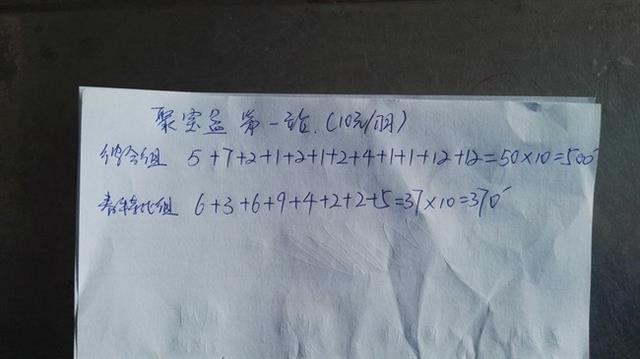 聚宝盆 第一站.(10元/羽)
综合组 5+7+2+1+2+1+2+4+1+1+12+12=50×10=500
6+3+6+9+4+2+2+5=37×10=370